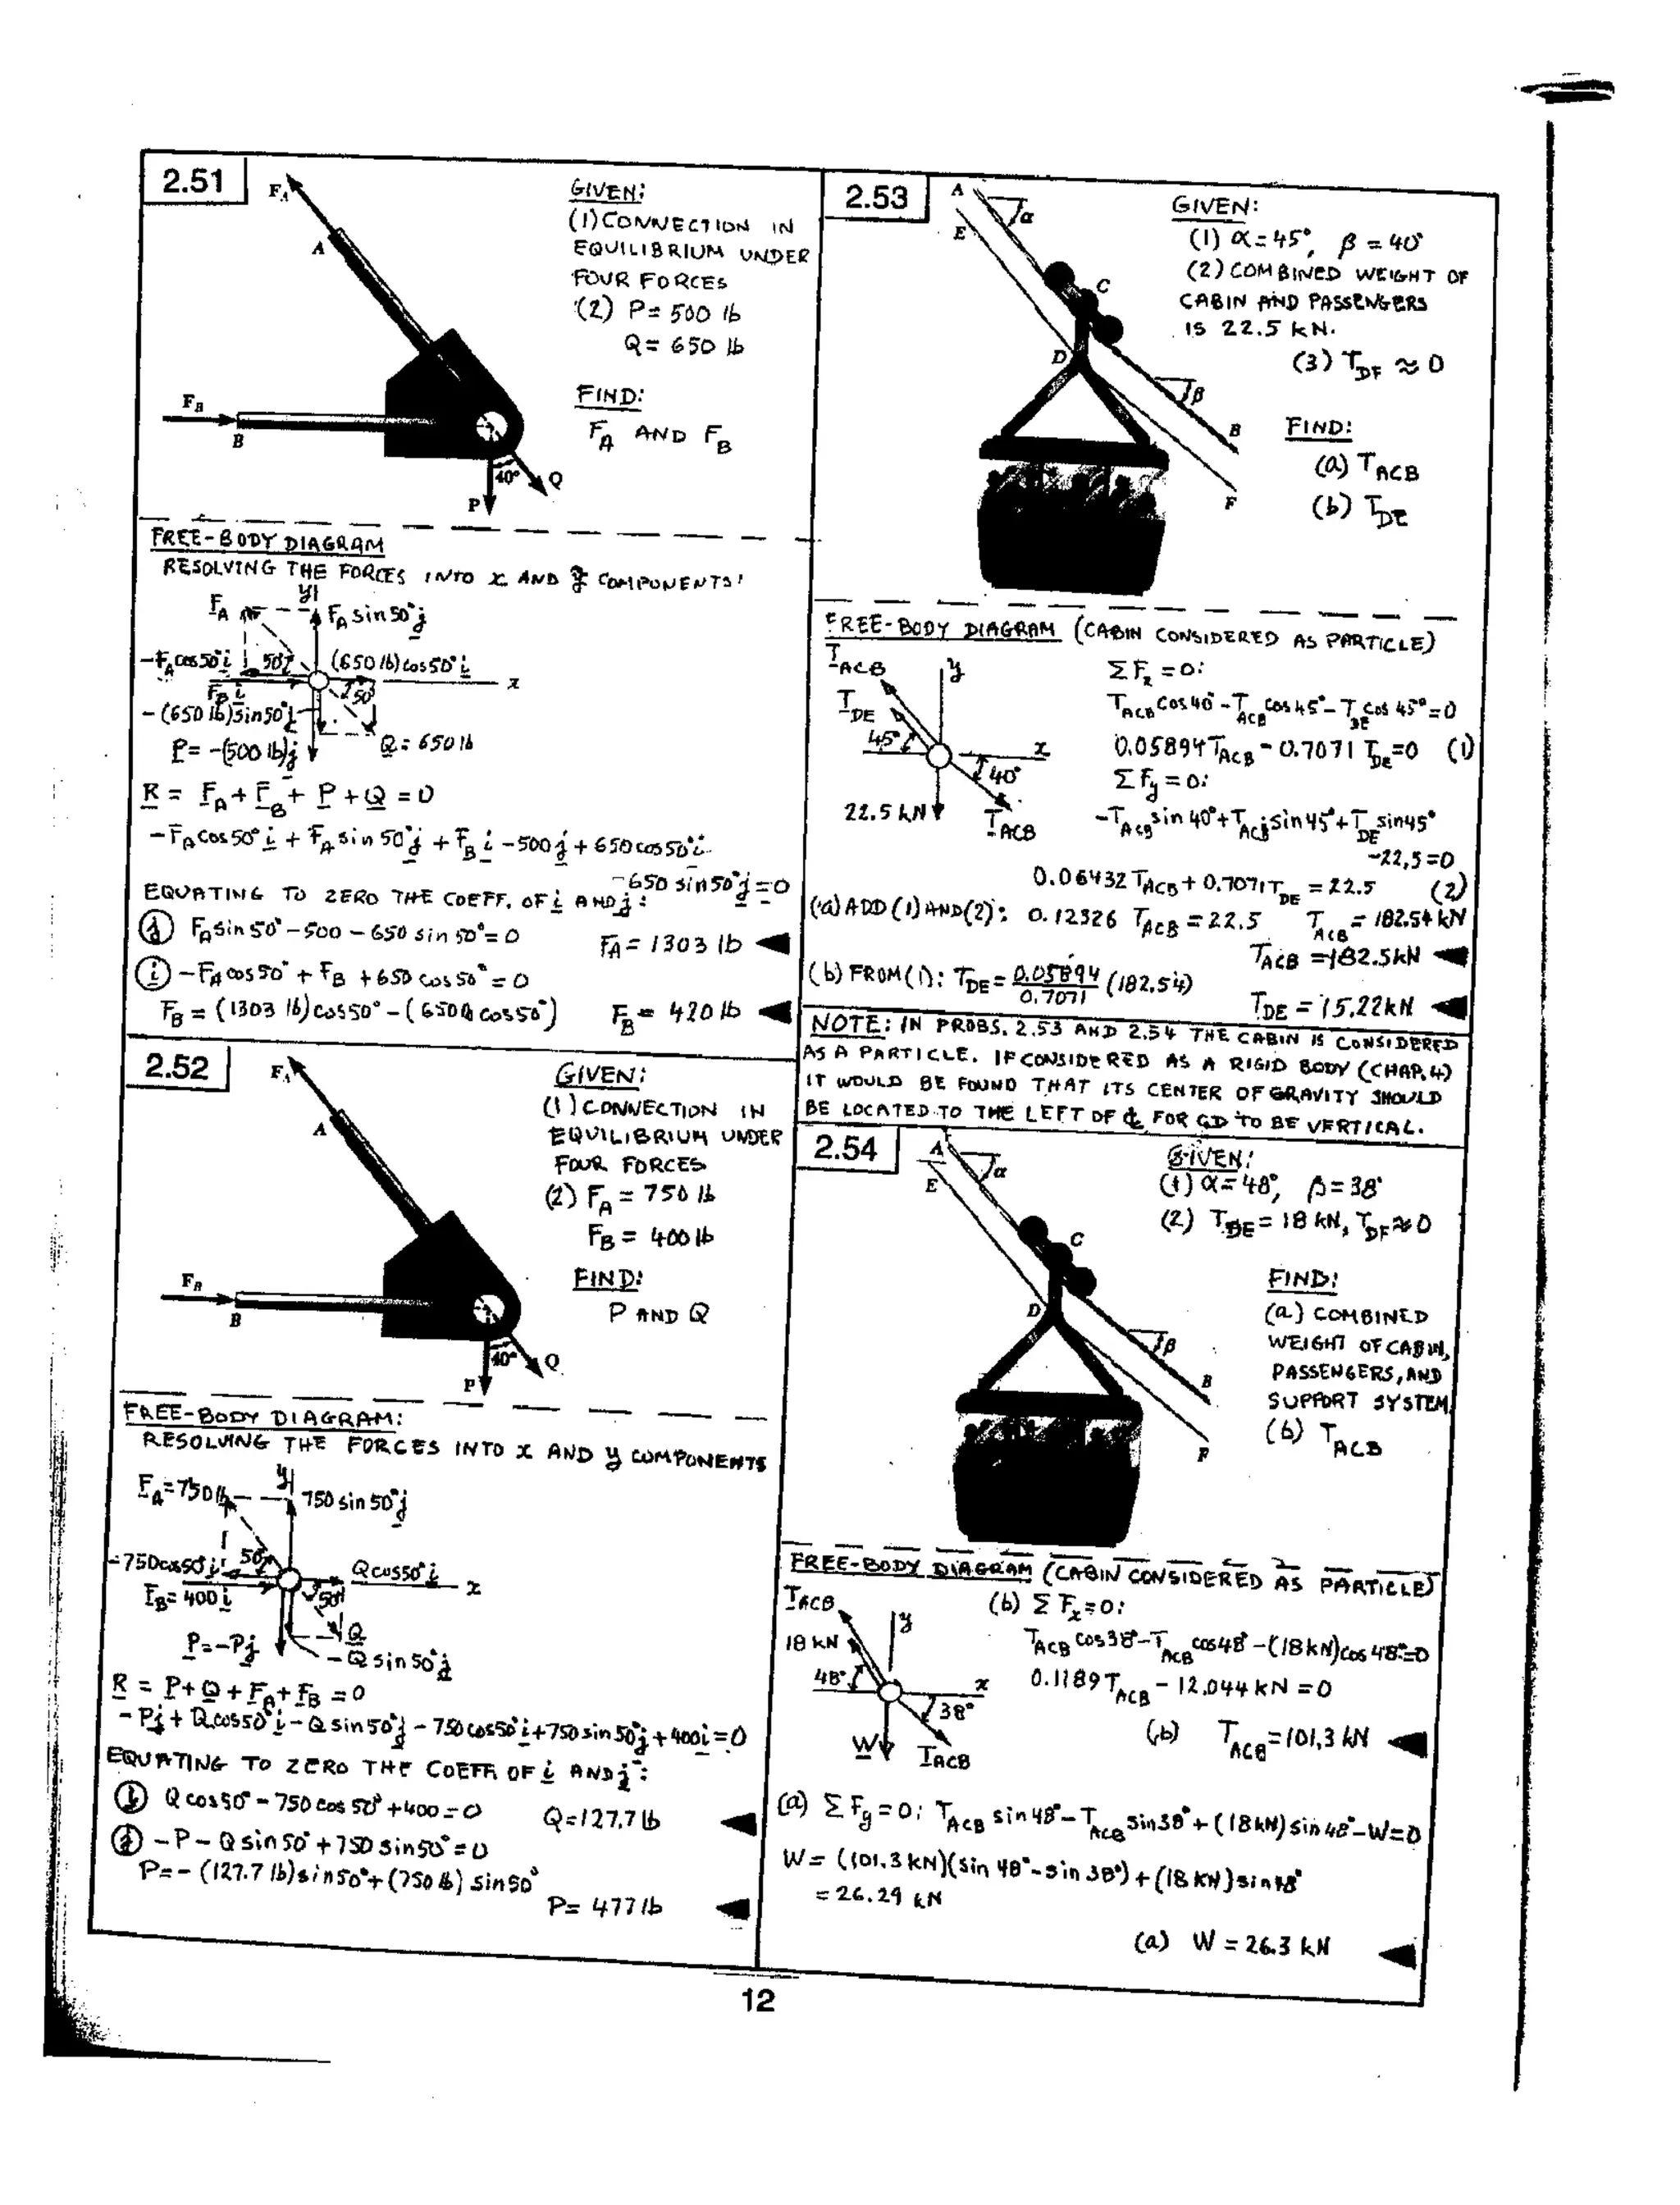 2.51
F_A
A
F_B
B
40°
P
Q
GIVEN:
(1) CONNECTION IN
EQUILIBRIUM UNDER
FOUR FORCES
(2) P = 500 lb
Q = 650 lb
FIND:
F_A AND F_B
FREE-BODY DIAGRAM
RESOLVING THE FORCES INTO x AND y COMPONENTS:
F_A
y
F_A sin 50° j
-F_A cos 50° i
50°
(650 lb) cos 50° i
x
F_B i
50°
-(650 lb) sin 50° j
P = -(500 lb) j
Q = 650 lb
R = F_A + F_B + P + Q = 0
-F_A cos 50° i + F_A sin 50° j + F_B i - 500 j + 650 cos 50° i
- 650 sin 50° j = 0
EQUATING TO ZERO THE COEFF. OF i AND j:
(j) F_A sin 50° - 500 - 650 sin 50° = 0
F_A = 1303 lb
(i) -F_A cos 50° + F_B + 650 cos 50° = 0
F_B = (1303 lb) cos 50° - (650 lb cos 50°)
F_B = 420 lb
2.52
F_A
A
F_B
B
40°
P
Q
GIVEN:
(1) CONNECTION IN
EQUILIBRIUM UNDER
FOUR FORCES
(2) F_A = 750 lb
F_B = 400 lb
FIND:
P AND Q
FREE-BODY DIAGRAM:
RESOLVING THE FORCES INTO x AND y COMPONENTS
F_A = 750 lb
y
750 sin 50° j
-750 cos 50° i
50°
Q cos 50° i
x
F_B = 400 i
50°
P = -P j
Q
-Q sin 50° j
R = P + Q + F_A + F_B = 0
-P j + Q cos 50° i - Q sin 50° j - 750 cos 50° i + 750 sin 50° j + 400 i = 0
EQUATING TO ZERO THE COEFF. OF i AND j:
(i) Q cos 50° - 750 cos 50° + 400 = 0
Q = 127.7 lb
(j) -P - Q sin 50° + 750 sin 50° = 0
P = -(127.7 lb) sin 50° + (750 lb) sin 50°
P = 477 lb
2.53
A
α
E
C
D
β
B
F
GIVEN:
(1) α = 45°, β = 40°
(2) COMBINED WEIGHT OF
CABIN AND PASSENGERS
IS 22.5 kN.
(3) T_DF ≈ 0
FIND:
(a) T_ACB
(b) T_DE
FREE-BODY DIAGRAM (CABIN CONSIDERED AS PARTICLE)
T_ACB
y
T_DE
45°
x
40°
22.5 kN
T_ACB
ΣF_x = 0:
T_ACB cos 40° - T_ACB cos 45° - T_DE cos 45° = 0
0.05894 T_ACB - 0.7071 T_DE = 0 (1)
ΣF_y = 0:
-T_ACB sin 40° + T_ACB sin 45° + T_DE sin 45°
-22,5 = 0
0.06432 T_ACB + 0.7071 T_DE = 22.5 (2)
(a) ADD (1) AND (2): 0.12326 T_ACB = 22.5 T_ACB = 182.54 kN
T_ACB = 182.5 kN
(b) FROM (1): T_DE = 0.05894/0.7071 (182.54)
T_DE = 15.22 kN
NOTE: IN PROBS. 2.53 AND 2.54 THE CABIN IS CONSIDERED
AS A PARTICLE. IF CONSIDERED AS A RIGID BODY (CHAP. 4)
IT WOULD BE FOUND THAT ITS CENTER OF GRAVITY SHOULD
BE LOCATED TO THE LEFT OF ℄ FOR CD TO BE VERTICAL.
2.54
A
α
E
C
D
β
B
F
GIVEN:
(1) α = 48°, β = 38°
(2) T_DE = 18 kN, T_DF ≈ 0
FIND:
(a) COMBINED
WEIGHT OF CABIN,
PASSENGERS, AND
SUPPORT SYSTEM
(b) T_ACB
FREE-BODY DIAGRAM (CABIN CONSIDERED AS PARTICLE)
T_ACB
y
18 kN
48°
x
38°
W
T_ACB
(b) ΣF_x = 0:
T_ACB cos 38° - T_ACB cos 48° - (18 kN) cos 48° = 0
0.1189 T_ACB - 12.044 kN = 0
(b) T_ACB = 101,3 kN
(a) ΣF_y = 0; T_ACB sin 48° - T_ACB sin 38° + (18 kN) sin 48° - W = 0
W = (101.3 kN)(sin 48° - sin 38°) + (18 kN) sin 48°
= 26.29 kN
(a) W = 26.3 kN
12